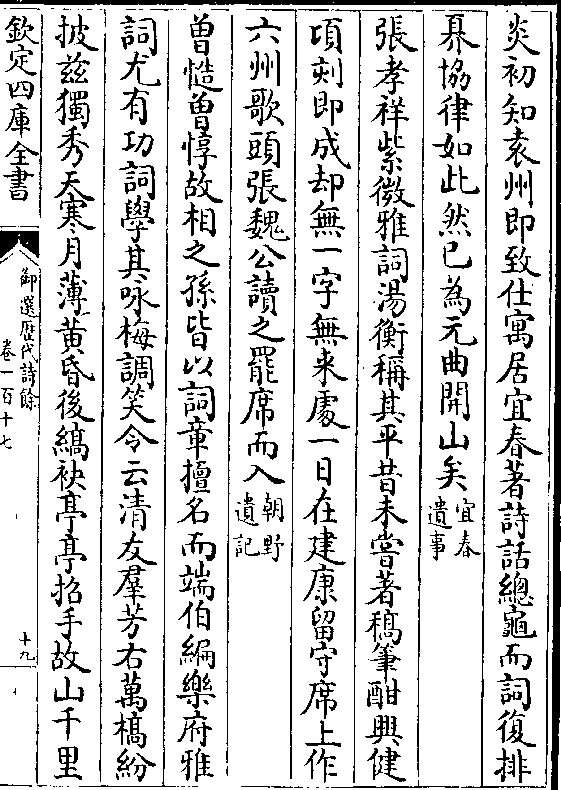 炎初知袁州即致仕寓居宜春著詩話總龜而詞復排
奡協律如此然已為元曲開山矣宜春遺事
張孝祥紫微雅詞湯衡稱其平昔未嘗著稿筆酣興健
頃刻即成却無一字無來處一日在建康留守席上作
六州歌頭張魏公讀之罷席而入朝野遺記
曾慥曾惇故相之孫皆以詞章擅名而端伯編樂府雅
詞尤有功詞學其咏梅調笑令云清友羣芳右萬槁紛
披兹獨秀天寒月薄黄昏後縞袂亭亭招手故山千里
欽定四庫全書
御選歷代詩餘
卷一百十七
十九